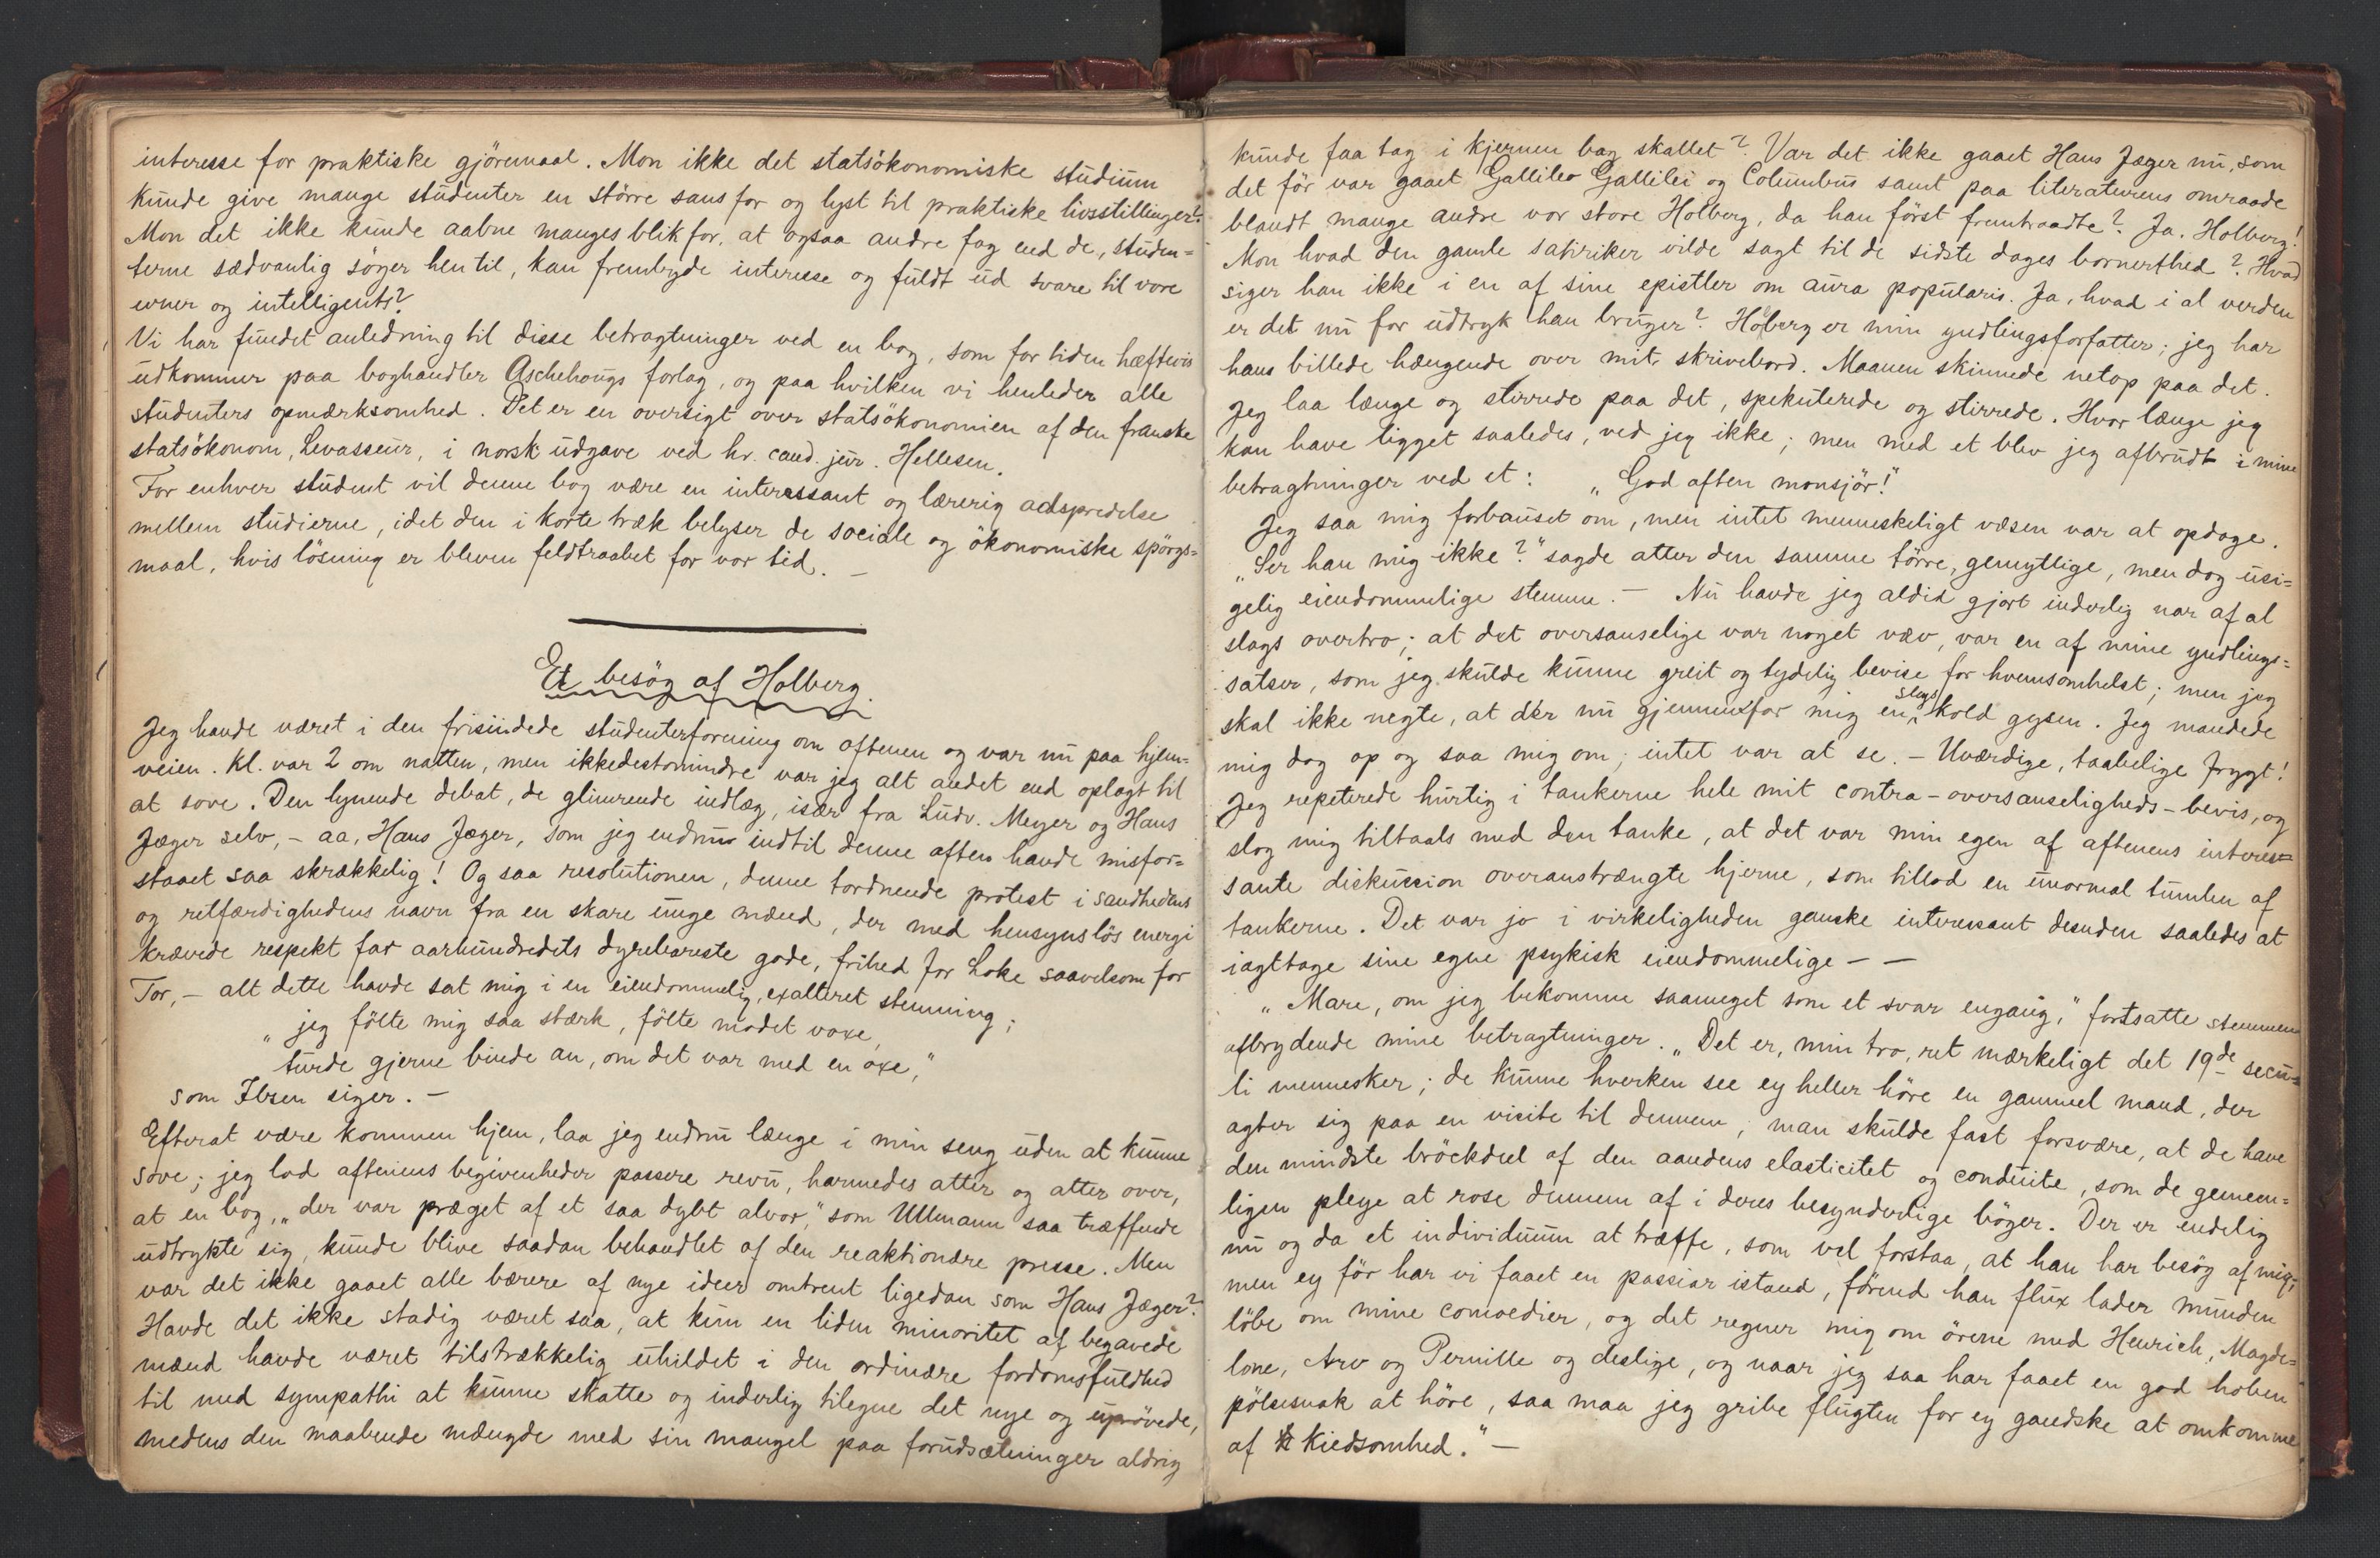 interesse for praktiske gjöremaal. Mon ikke det statsökonomiske studium
kunde give mange studenter en större sans for og lyst til praktiske livsstillinger?
Mon det ikke kunde aabne manges blik for, at ogsaa andre fag end de, studen=
terne sædvanlig söger hen til, kan frembyde interesse og fuldt ud svare til vore
evner og intelligents?
Vi har fundet anledning til disse betragtninger ved en bog, som for tiden hæftevis
udkommer paa boghandler Aschehougs forlag, og paa hvilken vi henleder alle
studenters opmærksomhed. Det er en oversigt over statsökonomien af den franske
statsökonom, Levasseur, i norsk udgave ved hr. cand. jur. Hellesen.
For enhver student vil denne bog være en interessant og lærerig adspredelse
mellem studierne, idet den i korte træk belyser de sociale og ökonomiske spörgs=
maal, hvis lösning er bleven feldtraabet for vor tid. —
Et besög af Holberg.
Jeg havde været i den frisindede studenterforening om aftenen og var nu paa hjem=
veien. Kl. var 2 om natten, men ikkedestomindre var jeg alt andet end oplagt til
at sove. Den lynende debat, de glimrende indlæg, især fra Ludv. Meyer og Hans
Jæger selv, – aa, Hans Jæger, som jeg endnu indtil denne aften havde misfor=
staaet saa skrækkelig! Og saa resolutionen, denne tordnende protest i sandhedens
og retfærdighedens navn fra en skare unge mænd, der med hensynslös energi
krævede respekt for aarhundredets dyrebareste gode, frihed for Loke saavelsom for
Tor, – alt dette havde sat mig i en eiendommelig, exalteret stemning;
„jeg fölte mig saa stærk, fölte modet voxe,
turde gjerne binde an, om det var med en oxe,"
som Ibsen siger. —
Efterat være kommen hjem, laa jeg endnu længe i min seng uden at kunne
sove; jeg lod aftenens begivenheder passere revu, harmedes atter og atter over,
at en bog, „der var præget af et saa dybt alvor," som Ullmann saa træffende
udtrykte sig, kunde blive saadan behandlet af den reaktionære presse. Men
var det ikke gaaet alle bærere af nye ideer omtrent ligedan som Hans Jæger?
Havde det ikke stadig været saa, at kun en liden minoritet af begavede
mænd havde været tilstrækkelig uhildet i den ordinære fordomsfuldhed
til med sympathi at kunne skatte og inderlig tilegne det nye og uprövede,
medens den maabende mængde med sin mangel paa forudsætninger aldrig
kunde faa tag i kjernen bag skallet? Var det ikke gaaet Hans Jæger nu, som
det för var gaaet Gallileo Gallilei og Columbus samt paa literaturens omraade
blandt mange andre vor store Holberg, da han först fremtraadte? Ja, Holberg!
Mon hvad den gamle satiriker vilde sagt til de sidste dages bornerthed? Hvad
siger han ikke i en af sine epistler om aura popularis. Ja, hvad i al verden
er det nu for udtryk han bruger? Holberg er min yndlingsforfatter; jeg har
hans billede hængende over mit skrivebord. Maanen skinnede netop paa det.
Jeg laa længe og stirrede paa det, spekulerede og stirrede. Hvor længe jeg
kan have ligget saaledes, ved jeg ikke; men med et blev jeg afbrudt i mine
betragtninger ved et: „God aften monsjör!"
Jeg saa mig forbauset om, men intet menneskeligt væsen var at opdage.
„Ser han mig ikke?" sagde atter den samme törre, gemytlige, men dog usi=
gelig eiendommelige stemme. — Nu havde jeg altid gjort inderlig nar af al
slags overtro; at det oversanselige var noget væv, var en af mine yndlings=
satser, som jeg skulde kunne greit og tydelig bevise for hvemsomhelst; men jeg
skal ikke negte, at der nu gjennemfor mig en slags kold gysen. Jeg mandede
mig dog op og saa mig om; intet var at se. – Uværdige, taabelige frygt!
Jeg repeterede hurtig i tankerne hele mit contra-oversanseligheds-bevis, og
slog mig tiltaals med den tanke, at det var min egen af aftenens interes=
sante diskussion overanstrængte hjerne, som tillod en unormal tumlen af
tankerne. Det var jo i virkeligheden ganske interessant desuden saaledes at
iagttage sine egne psykisk eiendommelige — —
„Mare, om jeg bekomme saameget som et svar engang," fortsatte stemmen
afbrydende mine betragtninger. „Det er, min tro, ret mærkeligt det 19de secu=
li mennesker; de kunne hverken see ey heller höre en gammel mand, der
agter sig paa en visite til dennem; man skulde fast forsvære, at de have
den mindste bröckdeel af den aandens elasticitet og conduite, som de gemeen=
ligen pleye at rose dennem af i deres besynderlige böger. Der er endelig
nu og da et individuum at træffe, som vel forstaa, at han har besög af mig;
men ey för har vi faaet en passiar istand, förend han flux lader munden
löbe om mine comoedier, og det regner mig om örene med Henrich, Magde=
lone, Arv og Pernille og deslige, og naar jeg saa har faaet en god hoben
pölsesnak at höre, saa maa jeg gribe flugten for ey gandske at omkomme
af Kiedsomhed." —